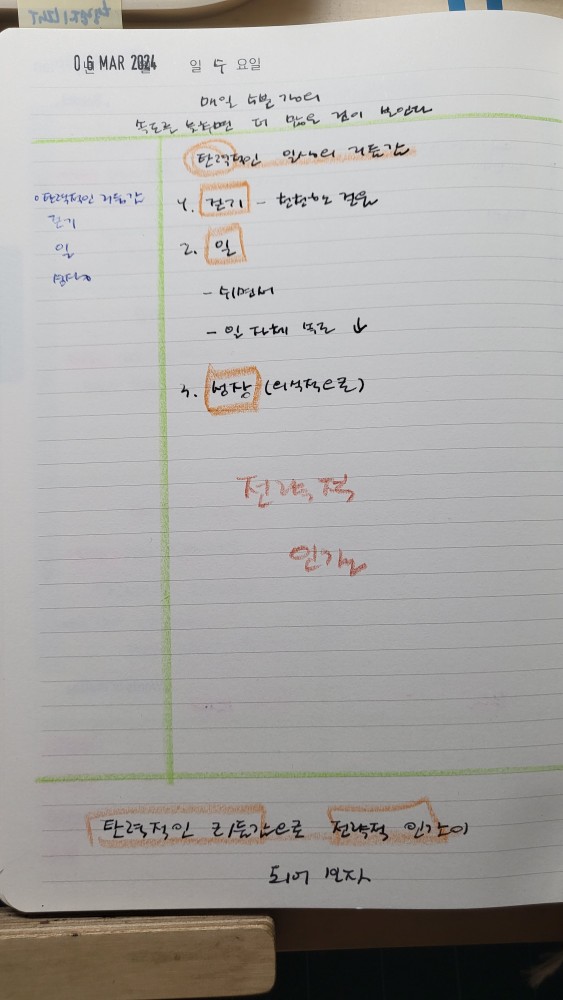 06 MAR 2024 일 수 요일
매일 5분 강의
속도를 늦추면 더 많은 것이 보인다
탄력적인 일상의 리듬감
탄력적인 리듬감
걷기
일
성장
1. 걷기 - 천천히 걸음
2. 일
- 쉬면서
- 일 자체 속도 ↓
3. 성장 (의식적으로)
전략적
인간
탄력적인 리듬감으로 전략적 인간이
되어 보자